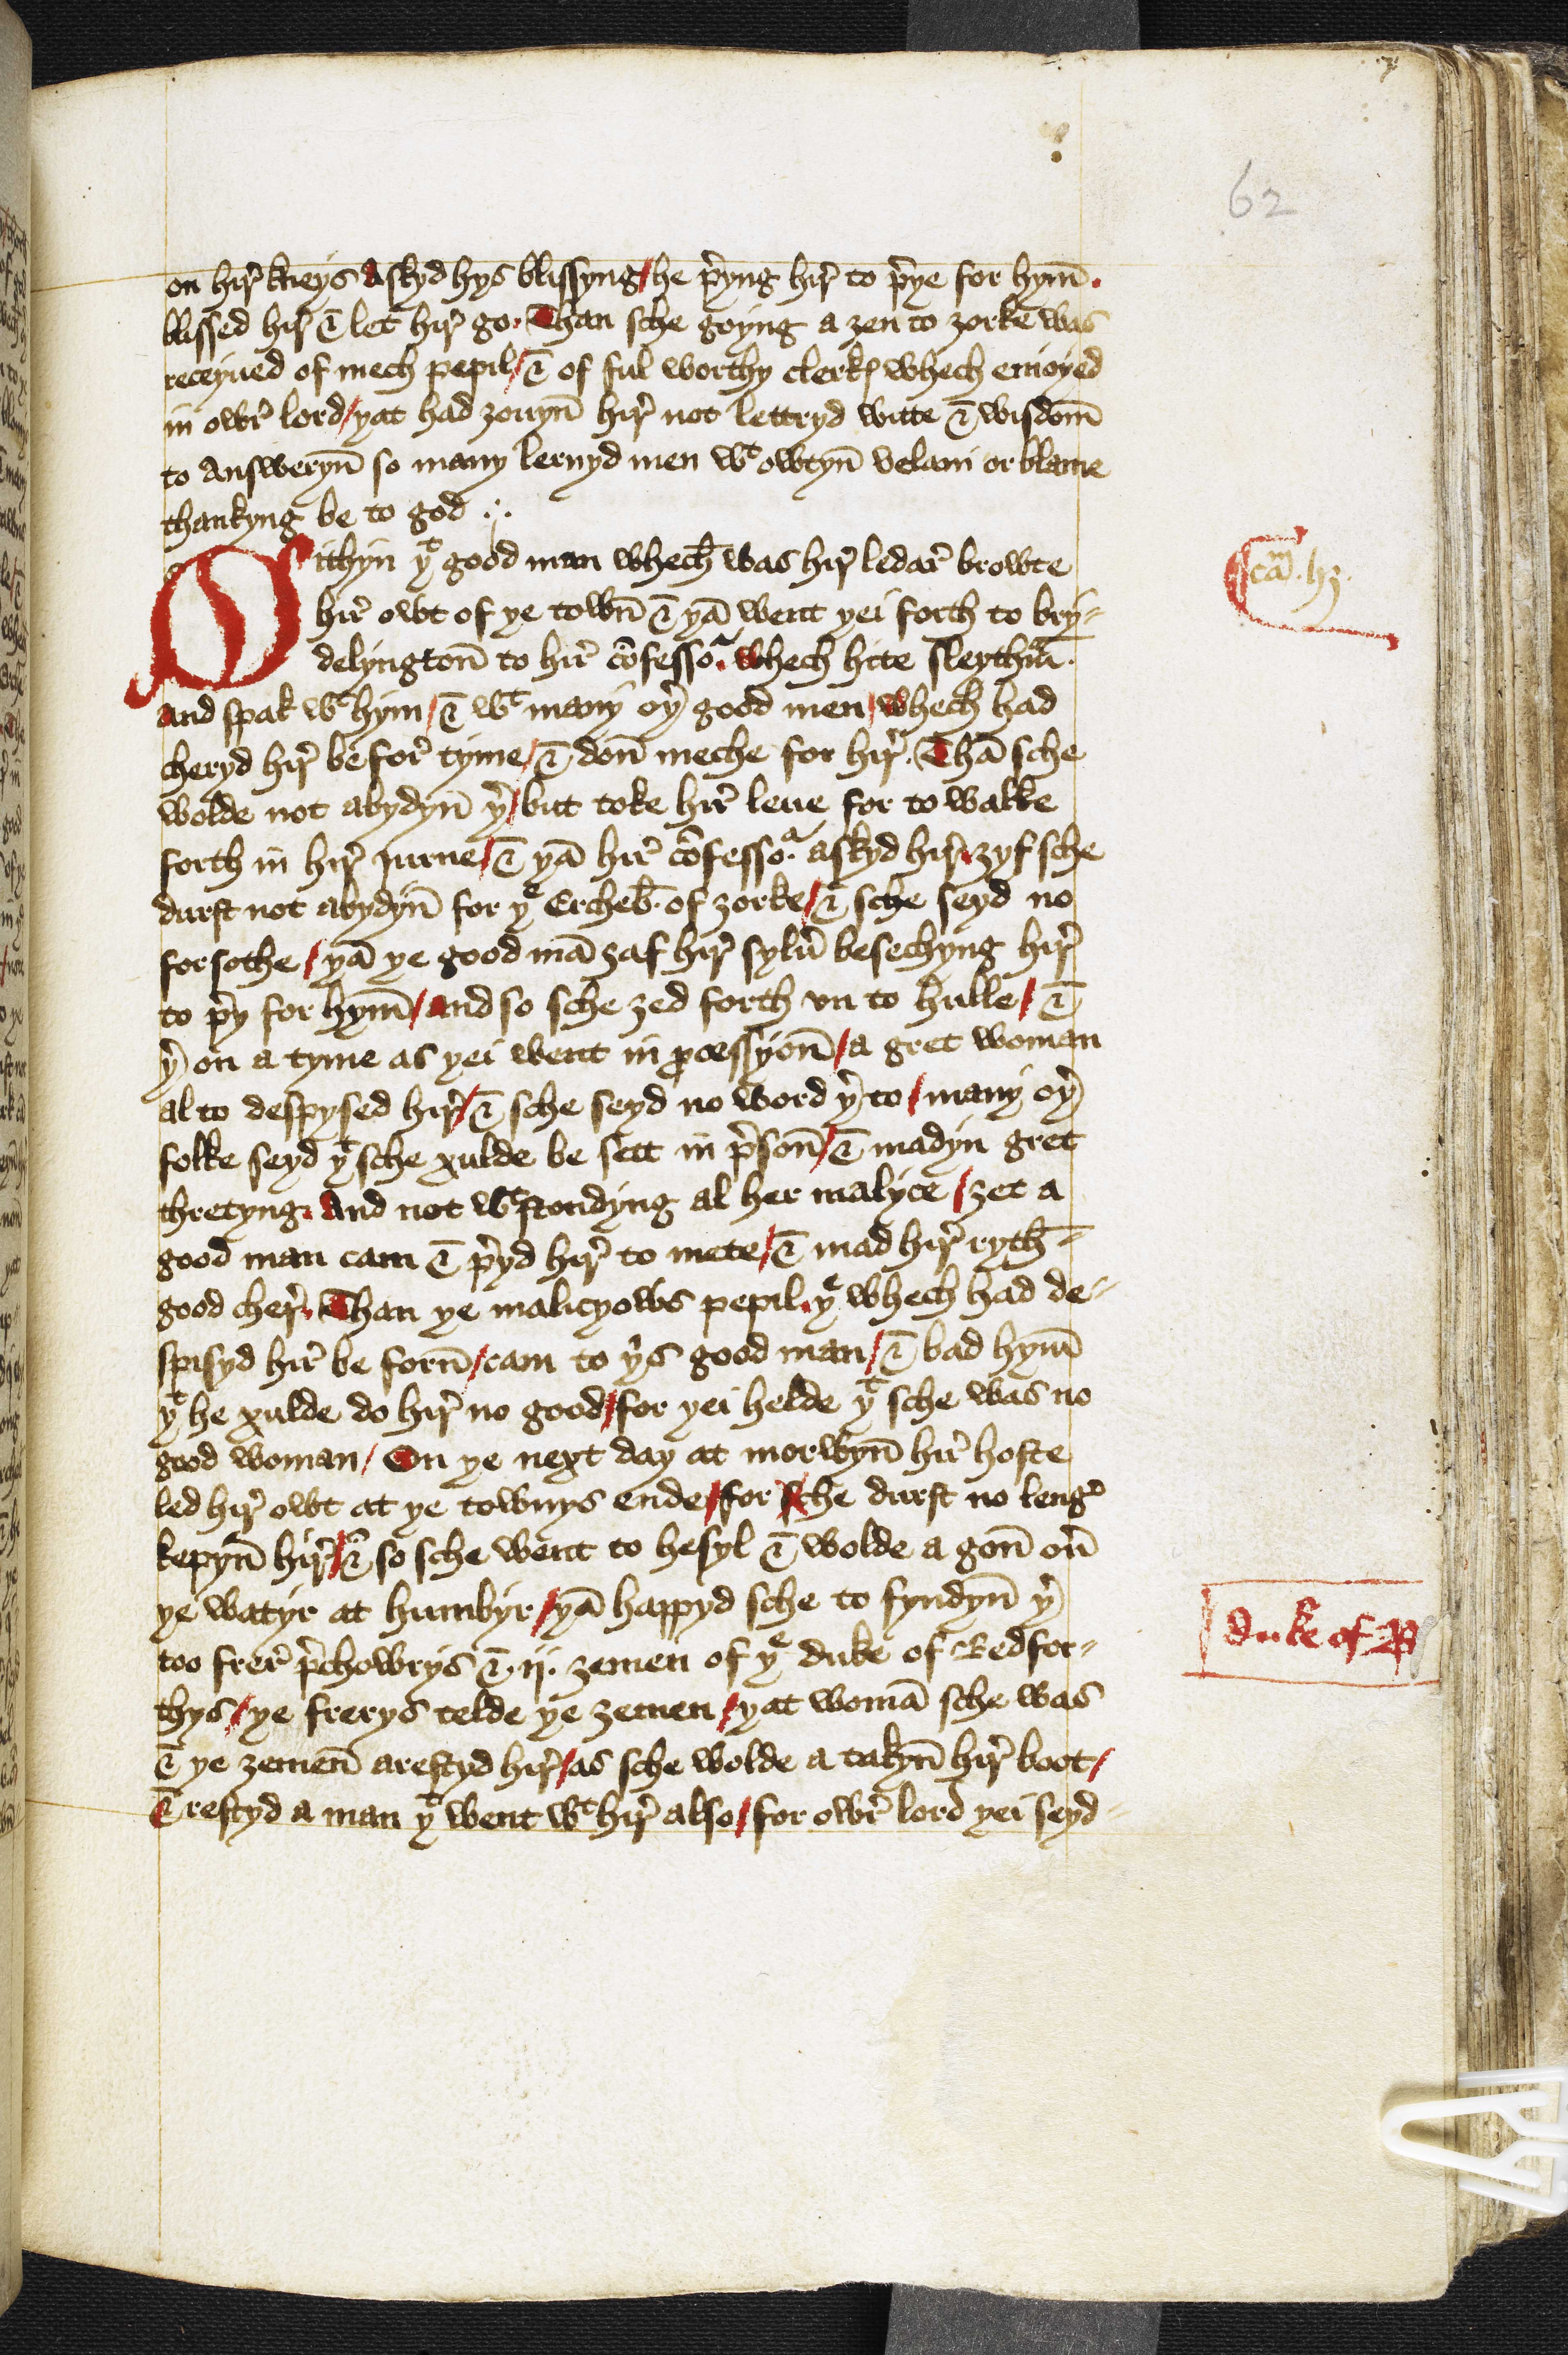 62
on hir̛ kneys Askyd hys blissyng / he p̛yng hir̛ to p̛ye for hym̄ .
blissed hir̛ & let hir̛ go . Than sche goyng a ȝen to ȝorke was
receyued of mech pepil / & of ful worthy clerkꝭ whech enioyed
in owr̛ lord / yat had ȝouyn̄ hir̛ not lettryd witte & wisdom̄
to Answeryn̄ so many lernyd men wᵗ owtyn̄ velani or blame
thankyng be to god ⸫
Sithyn yᵗ good man whech̄ was hir̛ ledar̛ browte
hir̛ owt of ye town̄ & yā went yei forth to bry⸗
delyngton̄ to hir̛ cōfessoᵃ. whech hite sleythm̄ .
And spak wᵗ hym / & wᵗ many oy̛ good men / whech had
cheryd hir̛ be for̛ tyme / & don̄ meche for hir̛ . Thā sche
wolde not abydyn̄ y̛ / but toke hir̛ leue for to walke
forth in hir̛ jurne / & yā hir̛ cōfessoᵃ. askyd hir̛ . ȝyf sche
durst not abydyn̄ for yᵉ Ercheb̄. of ȝorke / & sche seyd no
forsothe / yā ye good mā ȝaf hir̛ sylư besechyng hir̛
to p̛y for hym̄ / And so sche ȝed forth vn to hulle / &
y̛ on a tyme as yei went in ꝓcessyon̄ / a gret woman
al to despysed hir̛ / & sche seyd no word y̛ to / many oy̛
folke seyd yᵗ sche xulde be sett in p̛son̄ / & madyn gret
thretyng . And not wᵗ stondyng al her malyce / ȝet a
good man cam & p̛yd hir̛ to mete / & mad hir̛ ryth̄ ⸗
good cher̛ . Than ye malicyows pepil . yᵉ whech had de⸗
spisyd hir̛ be forn̄ / cam to y̛s good man / & bad hym̄
yᵗ he xulde do hir̛ no good / for yei helde yᵗ sche was no
good woman / On ye next day at morwyn̄ hir̛ hoste
led hir̛ owt at ye townys ende / for sche durst no leng̛
kepyn̄ hir̛ / & so sche went to hesyl & wolde a gon̄ oư
ye watyr at humbyr / yā happyd sche to fyndyn̄ y̛
too frer̛ p̛chowrys & . ij . ȝemen of yᵉ duke of Bedfor⸗
thys / ye frerys telde ye ȝemen / yat womā sche was
& ye ȝemen̄ arestyd hir̛ / as sche wolde a takyn̄ hir̛ boot /
& restyd a man yᵗ went wᵗ hir̛ also / for owr̛ lord yei seyd⸗
caᵐ . liȝ .
duke of B